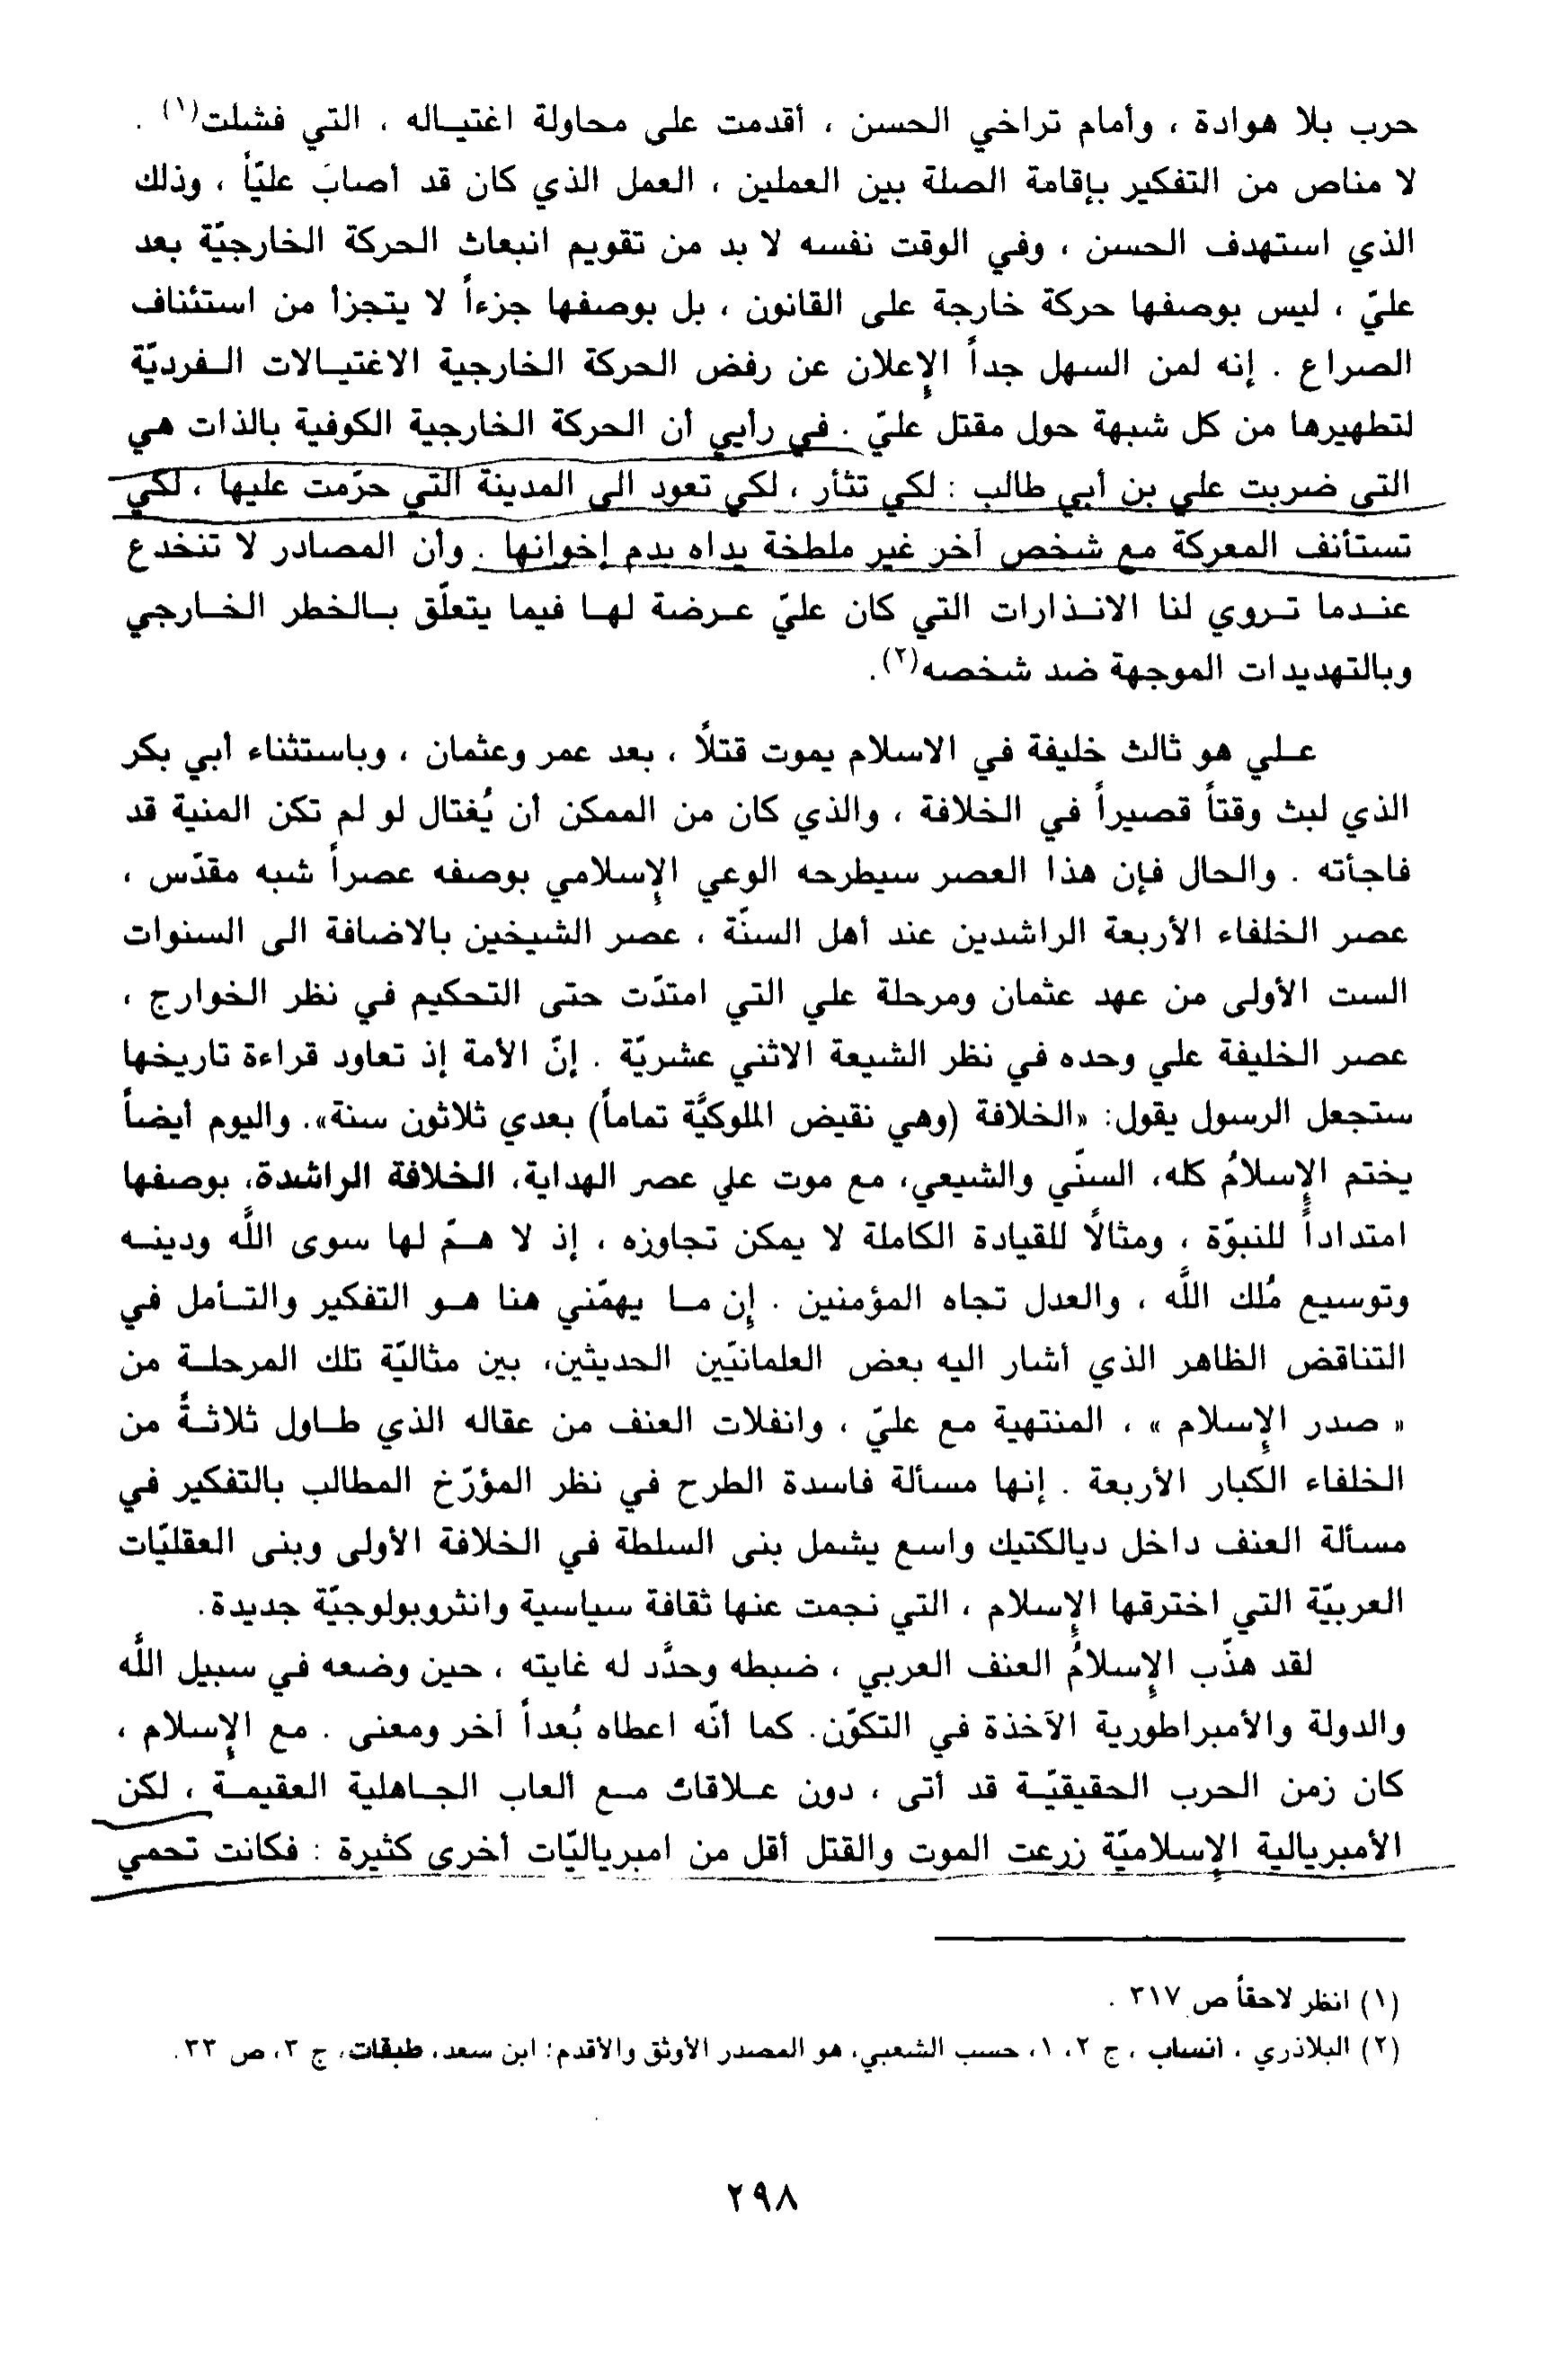 حرب بلا هوادة ، وأمام تراخي الحسن ، أقدمت على محاولة اغتيـاله ، التي فشلت(١) .
لا مناص من التفكير بإقامة الصلة بين العملين ، العمل الذي كان قد أصابَ عليّاً ، وذلك
الذي استهدف الحسن ، وفي الوقت نفسه لا بد من تقويم انبعاث الحركة الخارجيّة بعد
عليّ ، ليس بوصفها حركة خارجة على القانون ، بل بوصفها جزءاً لا يتجزأ من استئناف
الصراع . إنه لمن السهل جداً الإعلان عن رفض الحركة الخارجية الاغتيـالات الـفرديّة
لتطهيرها من كل شبهة حول مقتل عليّ . في رأيي أن الحركة الخارجية الكوفية بالذات هي
التي ضربت علي بن أبي طالب : لكي تثأر ، لكي تعود الى المدينة التي حرّمت عليها ، لكي
تستأنف المعركة مع شخص آخر غير ملطخة يداه بدم إخوانها . وأن المصادر لا تنخدع
عنـدما تـروي لنا الانـذارات التي كان عليّ عـرضة لهـا فيما يتعلّق بـالخطر الخـارجي
وبالتهديدات الموجهة ضد شخصه(٢).
عـلي هو ثالث خليفة في الاسلام يموت قتلاً ، بعد عمر وعثمان ، وباستثناء أبي بكر
الذي لبث وقتاً قصيراً في الخلافة ، والذي كان من الممكن أن يُغتال لو لم تكن المنية قد
فاجأته . والحال فإن هذا العصر سيطرحه الوعي الإسلامي بوصفه عصراً شبه مقدّس ،
عصر الخلفاء الأربعة الراشدين عند أهل السنّة ، عصر الشيخين بالاضافة الى السنوات
الست الأولى من عهد عثمان ومرحلة علي التي امتدّت حتى التحكيم في نظر الخوارج ،
عصر الخليفة علي وحده في نظر الشيعة الاثني عشريّة . إنّ الأمة إذ تعاود قراءة تاريخها
ستجعل الرسول يقول: «الخلافة (وهي نقيض الملوكيَّة تماماً) بعدي ثلاثون سنة». واليوم أيضاً
يختم الإسلامُ كله، السنّي والشيعي، مع موت علي عصر الهداية، الخلافة الراشدة، بوصفها
امتداداً للنبوّة ، ومثالاً للقيادة الكاملة لا يمكن تجاوزه ، إذ لا هـمّ لها سوى الله ودينـه
وتوسيع مُلك الله ، والعدل تجاه المؤمنين . إن مـا يهمّني هنا هـو التفكير والتـأمل في
التناقض الظاهر الذي أشار اليه بعض العلمانيّين الحديثين، بين مثاليّة تلك المرحلـة من
« صدر الإسلام » ، المنتهية مع عليّ ، وانفلات العنف من عقاله الذي طـاول ثلاثـةً من
الخلفاء الكبار الأربعة . إنها مسألة فاسدة الطرح في نظر المؤرّخ المطالب بالتفكير في
مسألة العنف داخل ديالكتيك واسع يشمل بنى السلطة في الخلافة الأولى وبنى العقليّات
العربيّة التي اخترقها الإسلام ، التي نجمت عنها ثقافة سياسية وانثروبولوجيّة جديدة.
لقد هذّب الإسلامُ العنف العربي ، ضبطه وحدَّد له غايته ، حين وضعه في سبيل الله
والدولة والأمبراطورية الآخذة في التكوّن. كما أنّه اعطاه بُعداً آخر ومعنى . مع الإسلام ،
كان زمن الحرب الحقيقيّـة قد أتى ، دون عـلاقات مـع ألعاب الجـاهلية العقيمـة ، لكن
الأمبريالية الإسلاميّة زرعت الموت والقتل أقل من امبرياليّات أخرى كثيرة : فكانت تحمي
(١) انظر لاحقاً ص ٣١٧ .
(٢) البلاذري ، أنساب ، ج ٢، ١، حسب الشعبي، هو المصدر الأوثق والأقدم: ابن سعد، طبقات، ج ٣، ص ٣٣.
٢٩٨